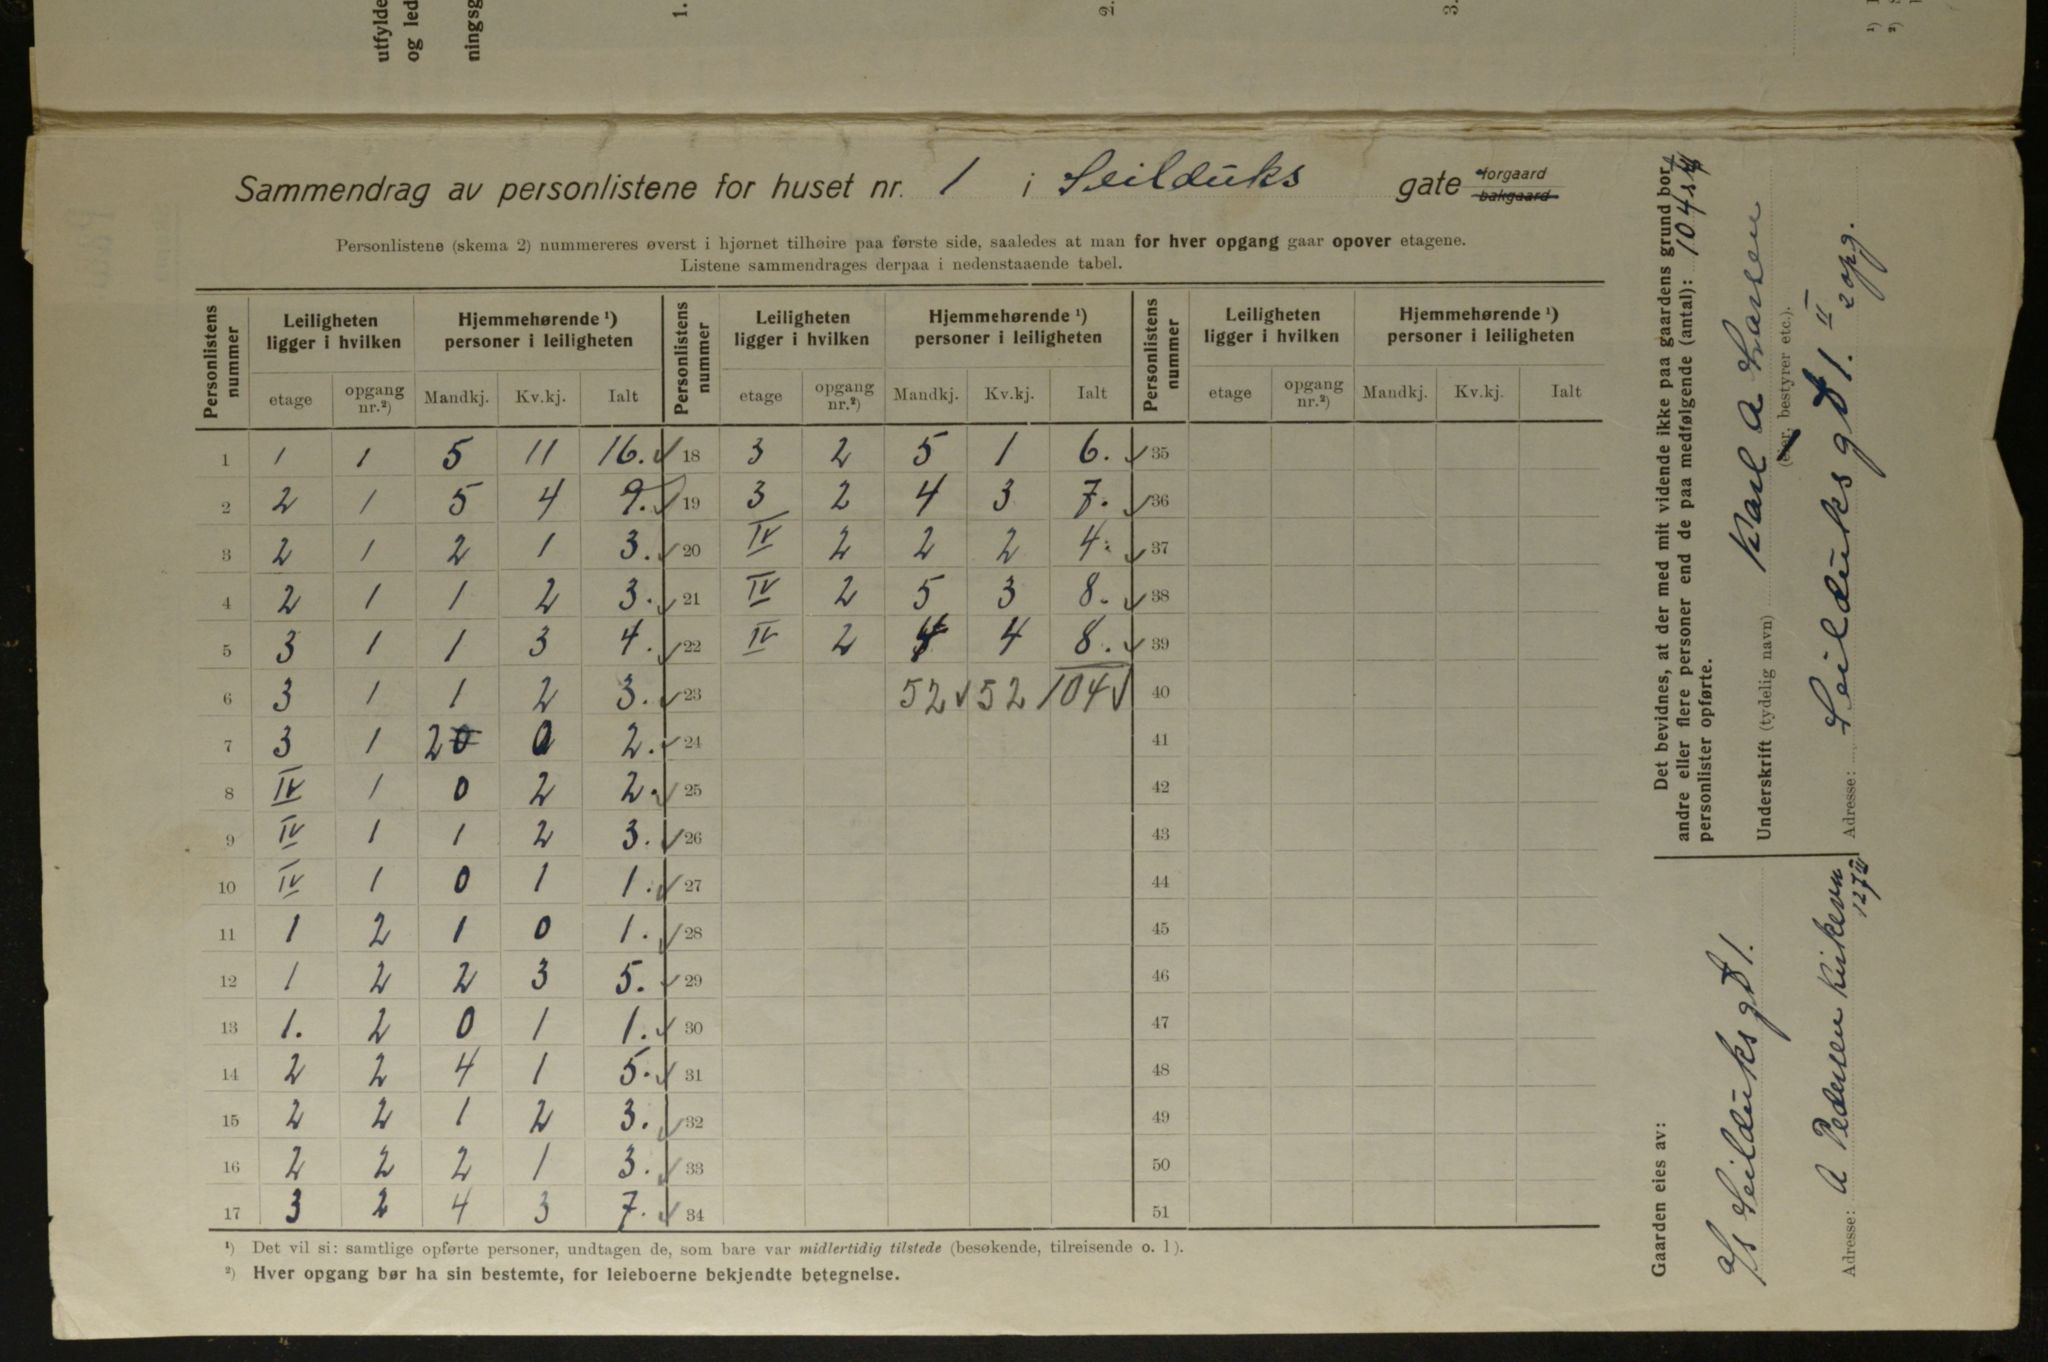 utfylde
og led
ningsg
1.
2.
3.
Sammendrag av personlistene for huset nr. 1 i Seilduks gate forgaard bakgaard
Personlistene (skema 2) nummereres øverst i hjørnet tilhøire paa første side, saaledes at man for hver opgang gaar opover etagene.
Listene sammendrages derpaa i nedenstaaende tabel.
Personlistens nummer | Leiligheten ligger i hvilken | Hjemmehørende ¹) personer i leiligheten | Personlistens nummer | Leiligheten ligger i hvilken | Hjemmehørende ¹) personer i leiligheten | Personlistens nummer | Leiligheten ligger i hvilken | Hjemmehørende ¹) personer i leiligheten
etage | opgang nr.²) | Mandkj. | Kv.kj. | Ialt | etage | opgang nr.²) | Mandkj. | Kv.kj. | Ialt | etage | opgang nr.²) | Mandkj. | Kv.kj. | Ialt
1 | 1 | 1 | 5 | 11 | 16. ✓ | 18 | 3 | 2 | 5 | 1 | 6. ✓ | 35
2 | 2 | 1 | 5 | 4 | 9. ✓ | 19 | 3 | 2 | 4 | 3 | 7. ✓ | 36
3 | 2 | 1 | 2 | 1 | 3. ✓ | 20 | IV | 2 | 2 | 2 | 4. ✓ | 37
4 | 2 | 1 | 1 | 2 | 3. ✓ | 21 | IV | 2 | 5 | 3 | 8. ✓ | 38
5 | 3 | 1 | 1 | 3 | 4. ✓ | 22 | IV | 2 | 4 | 4 | 8. ✓ | 39
6 | 3 | 1 | 1 | 2 | 3. ✓ | 23 | 52 ✓ | 52 | 104 ✓ | 40
7 | 3 | 1 | 2 0 | 0 | 2. ✓ | 24 | 41
8 | IV | 1 | 0 | 2 | 2. ✓ | 25 | 42
9 | IV | 1 | 1 | 2 | 3. ✓ | 26 | 43
10 | IV | 1 | 0 | 1 | 1. ✓ | 27 | 44
11 | 1 | 2 | 1 | 0 | 1. ✓ | 28 | 45
12 | 1 | 2 | 2 | 3 | 5. ✓ | 29 | 46
13 | 1. | 2 | 0 | 1 | 1. ✓ | 30 | 47
14 | 2 | 2 | 4 | 1 | 5. ✓ | 31 | 48
15 | 2 | 2 | 1 | 2 | 3. ✓ | 32 | 49
16 | 2 | 2 | 2 | 1 | 3. ✓ | 33 | 50
17 | 3 | 2 | 4 | 3 | 7. ✓ | 34 | 51
¹) Det vil si: samtlige opførte personer, undtagen de, som bare var midlertidig tilstede (besøkende, tilreisende o. l).
²) Hver opgang bør ha sin bestemte, for leieboerne bekjendte betegnelse.
Det bevidnes, at der med mit vidende ikke paa gaardens grund bor
andre eller flere personer end de paa medfølgende (antal): 104
personlister opførte.
Underskrift (tydelig navn) Karl A Larsen
(eier, bestyrer etc.).
Adresse: Seilduks gt 1. II 2 opg.
Gaarden eies av:
A/s Seilduks gt 1.
Adresse: A Pedersen Kirkevn 127 III